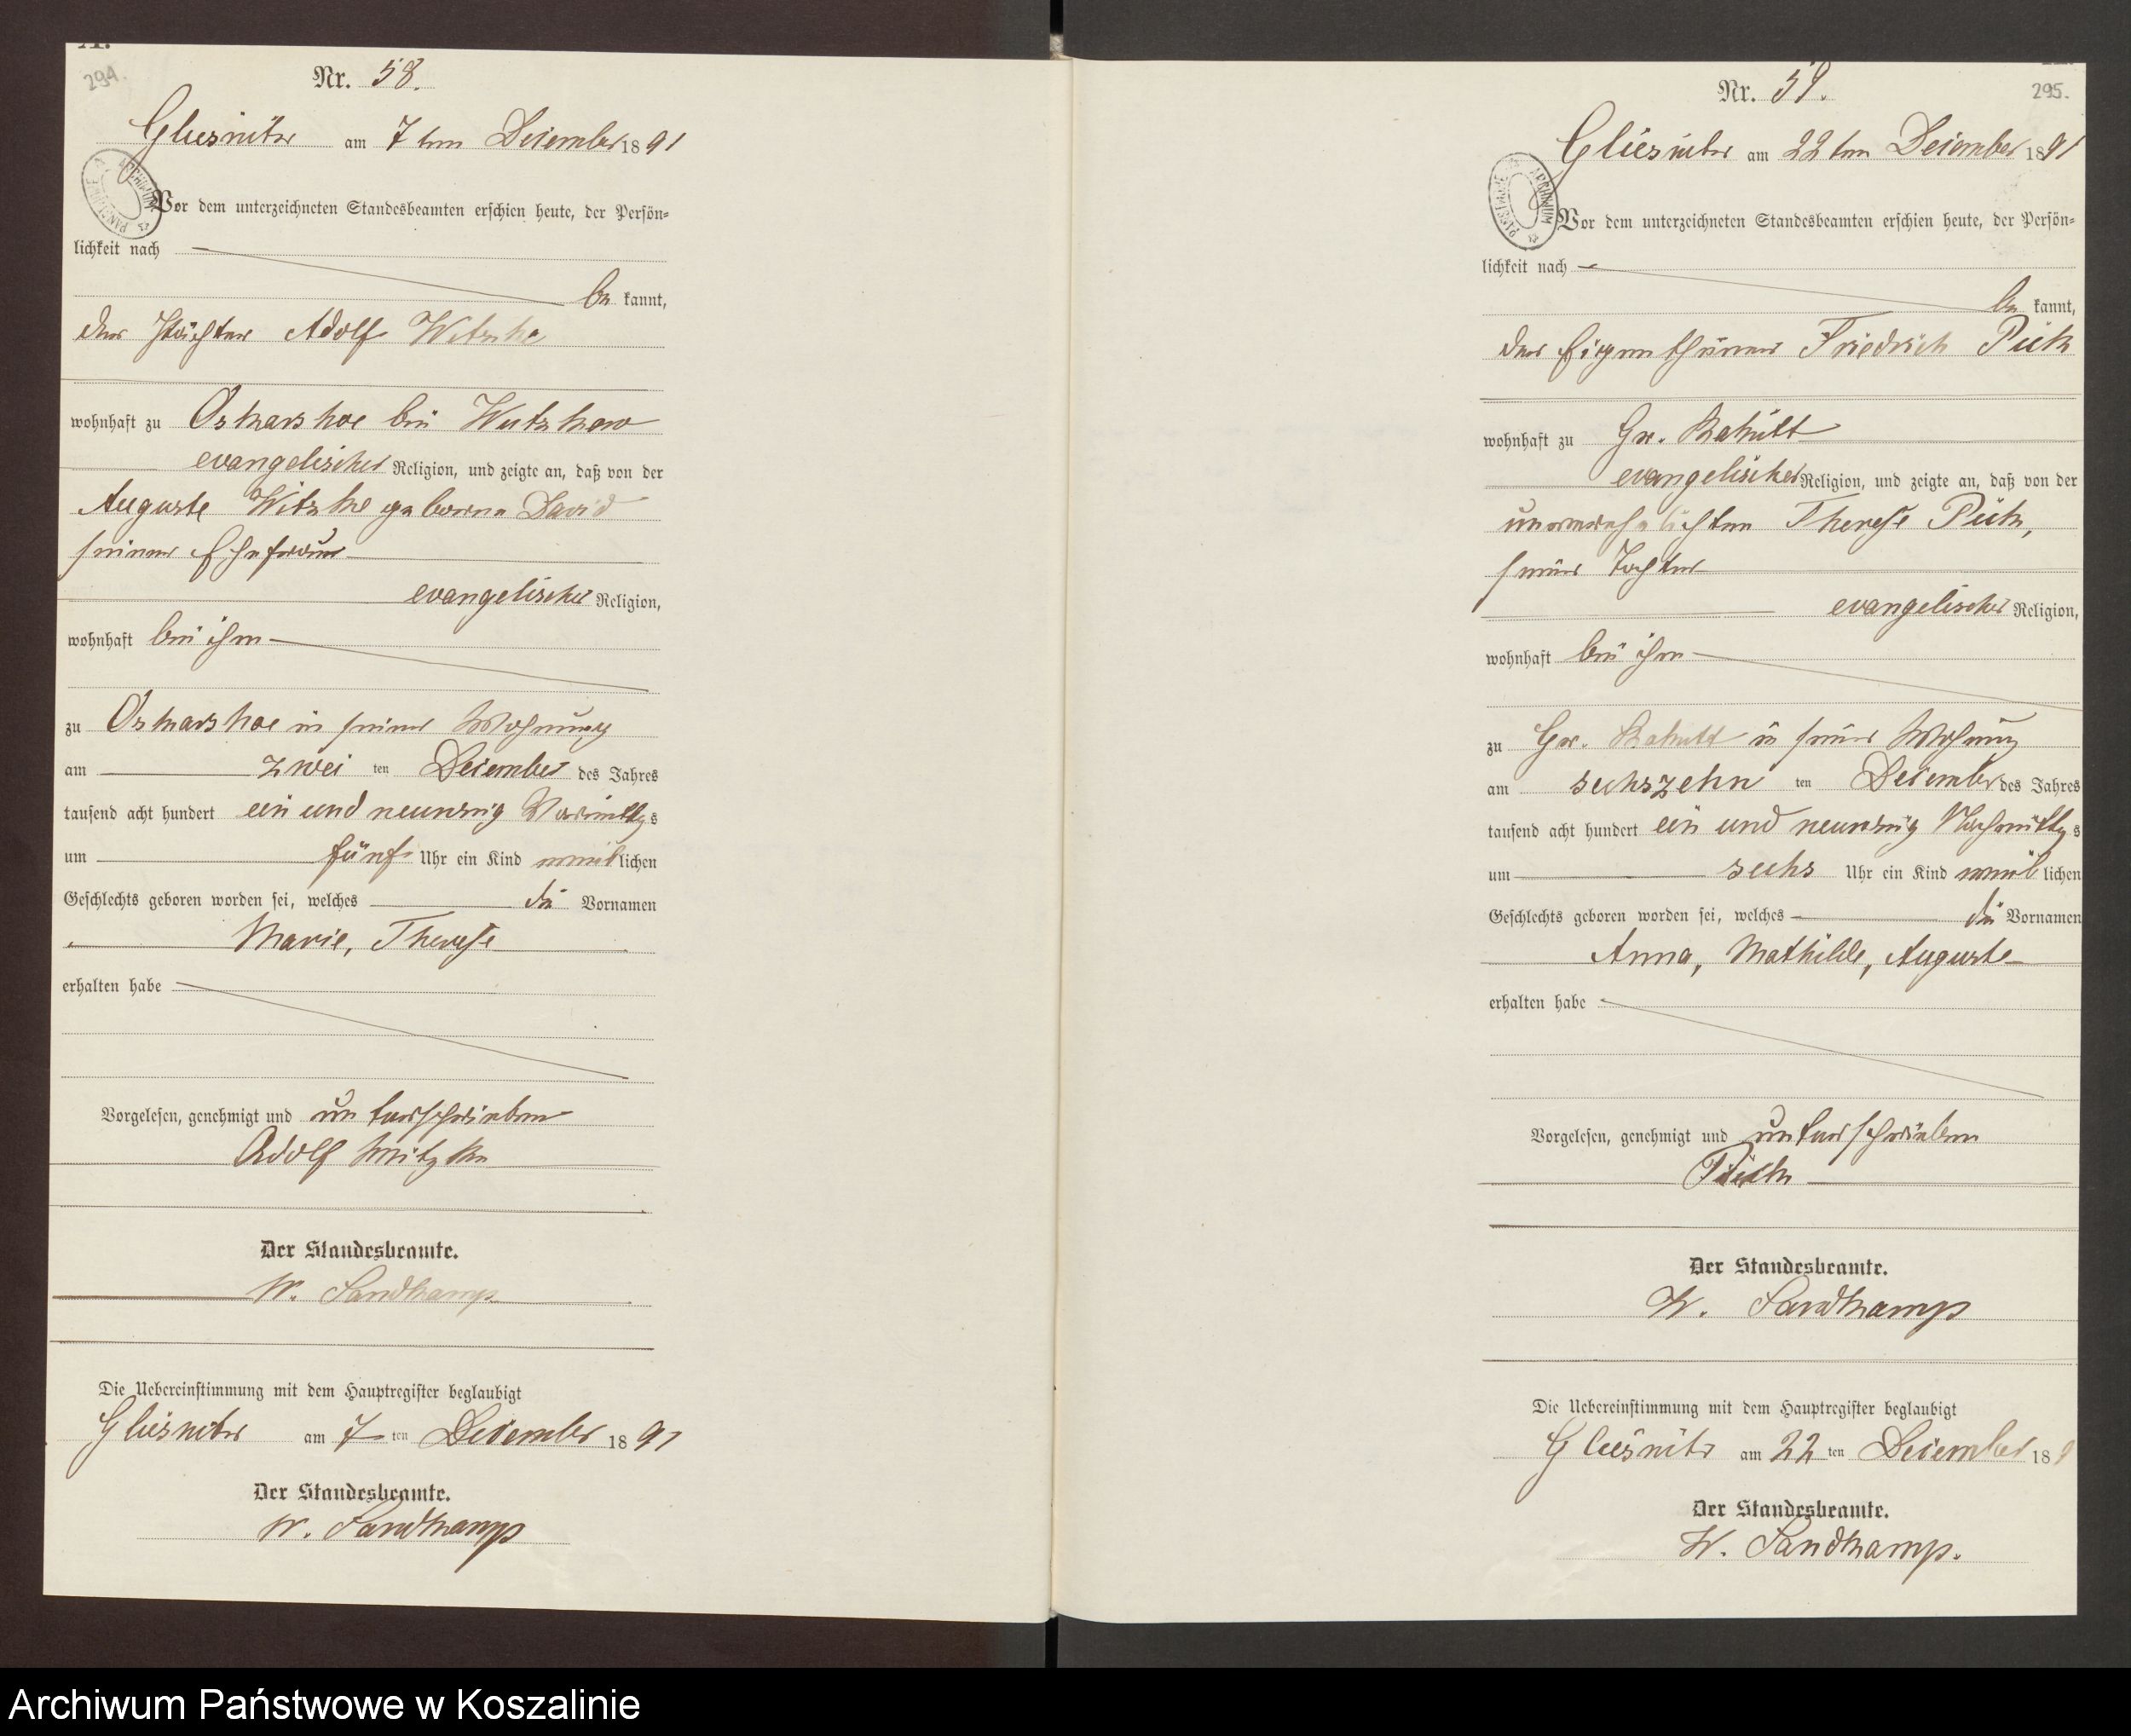 294.
Nr. 58.
Gluesnitz am 7ten Dezember 1891
Vor dem unterzeichneten Standesbeamten erschien heute, der Persön=
lichkeit nach
be kannt,
der Pächter Adolf Witzke
wohnhaft zu Oskarshoe bei Wutzkow
evangelischer Religion, und zeigte an, daß von der
Auguste Witzke geborne David
seiner Ehefrau
evangelischer Religion,
wohnhaft bei ihm
zu Oskarshoe in seiner Wohnung
am zwei ten Dezember des Jahres
tausend acht hundert ein und neunzig Vormittags
um fünf Uhr ein Kind weiblichen
Geschlechts geboren worden sei, welches die Vornamen
Marie, Therese
erhalten habe
Vorgelesen, genehmigt und unterschrieben
Adolf Witzke
Der Standesbeamte.
W. Sandkamp
Die Uebereinstimmung mit dem Hauptregister beglaubigt
Gluesnitz am 7 ten Dezember 1891
Der Standesbeamte.
W. Sandkamp
295.
Nr. 59.
Gluesnitz am 22ten Dezember 1891
Vor dem unterzeichneten Standesbeamten erschien heute, der Persön=
lichkeit nach
be kannt,
der Eigenthümer Friedrich Piek
wohnhaft zu Gr. Rakitt
evangelischer Religion, und zeigte an, daß von der
unverehelichten Therese Piek,
seiner Tochter
evangelischer Religion,
wohnhaft bei ihm
zu Gr. Rakitt in seiner Wohnung
am sechszehn ten Dezember des Jahres
tausend acht hundert ein und neunzig Nachmittags
um sechs Uhr ein Kind weiblichen
Geschlechts geboren worden sei, welches die Vornamen
Anna, Mathilde, Auguste
erhalten habe
Vorgelesen, genehmigt und unterschrieben
Der Standesbeamte.
W. Sandkamp
Die Uebereinstimmung mit dem Hauptregister beglaubigt
Gluesnitz am 22 ten Dezember 189
Der Standesbeamte.
W. Sandkamp.
Archiwum Państwowe w Koszalinie